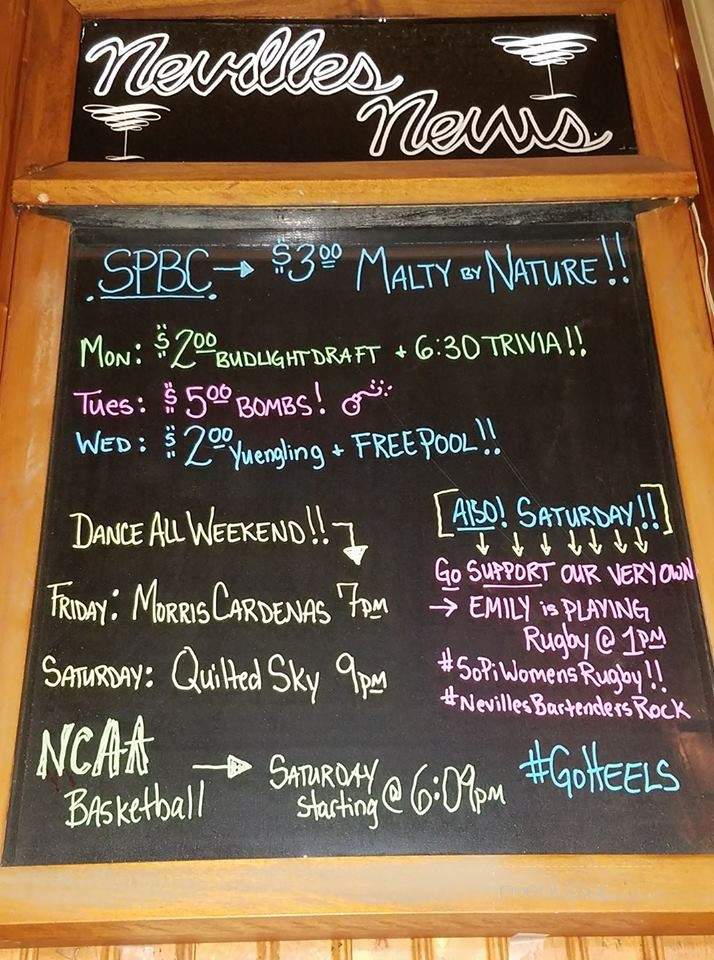 Nevilles
News
SPBC → $3.00 MALTY BY NATURE!!
MON: $2.00 BUDLIGHT DRAFT + 6:30 TRIVIA!!
TUES: $5.00 BOMBS!
WED: $2.00 Yuengling + FREE POOL!!
DANCE ALL WEEKEND!!
FRIDAY: MORRIS CARDENAS 7PM
SATURDAY: Quilted Sky 9PM
[Also! SATURDAY!!]
Go SUPPORT OUR VERY OWN
→ EMILY is PLAYING
Rugby @ 1PM
#SoPiWomensRugby!!
#NevillesBartendersRock
NCAA
Basketball → SATURDAY
starting @ 6:09pm
#GoHEELS